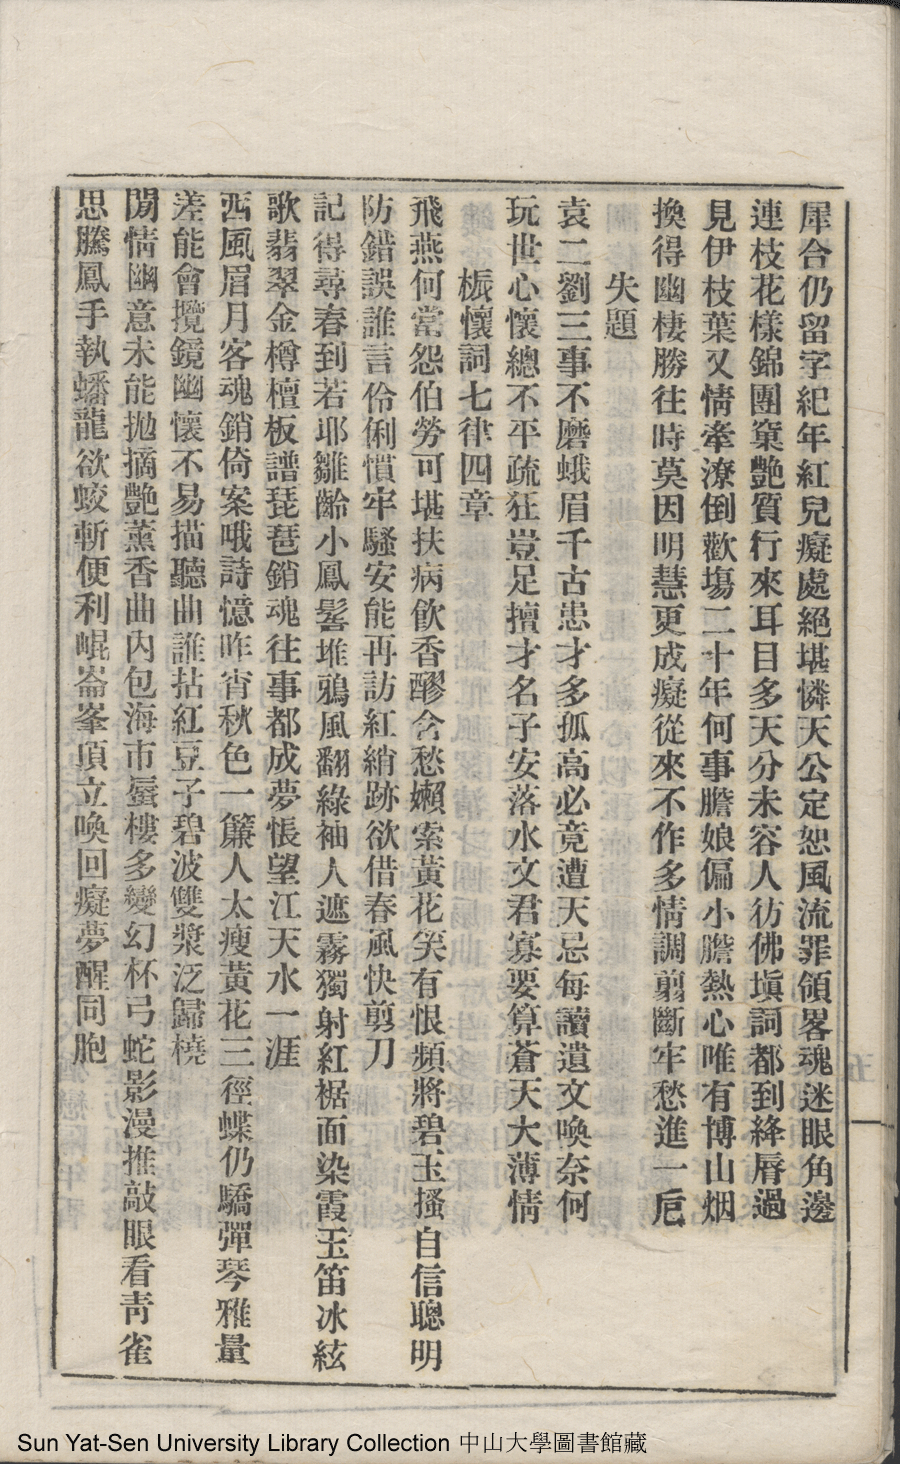 犀合仍留字紀年紅兒癡處絕堪憐天公定恕風流罪領畧魂迷眼角邊
連枝花樣錦團窠艷質行來耳目多天分未容人彷佛塡詞都到絳脣過
見伊枝葉又情牽潦倒歡塲二十年何事膽娘偏小膽熱心唯有博山烟
換得幽棲勝往時莫因明慧更成癡從來不作多情調剪斷牢愁進一卮
失題
袁二劉三事不磨蛾眉千古患才多孤高必竟遭天忌每讀遺文喚奈何
玩世心懷總不平疏狂豈足擅才名子安落水文君寡要算蒼天大薄情
棖懷詞七律四章
飛燕何當怨伯勞可堪扶病飲香醪含愁嬾索黃花笑有恨頻將碧玉搔自信聰明
防錯誤誰言伶俐慣牢騷安能再訪紅綃跡欲借春風快剪刀
記得尋春到若耶雛齡小鳳髻堆鴉風翻綠袖人遮霧獨射紅裾面染霞玉笛冰絃
歌翡翠金樽檀板譜琵琶銷魂往事都成夢悵望江天水一涯
西風眉月客魂銷倚案哦詩憶昨宵秋色一簾人太瘦黃花三徑蝶仍驕彈琴雅量
差能會攬鏡幽懷不易描聽曲誰拈紅豆子碧波雙槳泛歸橈
閒情幽意未能拋摘艷薰香曲內包海市蜃樓多變幻杯弓蛇影漫推敲眼看靑雀
思騰鳳手執蟠龍欲蛟斬便利崐崙峯頂立喚回癡夢醒同胞
Sun Yat-Sen University Library Collection 中山大學圖書館藏